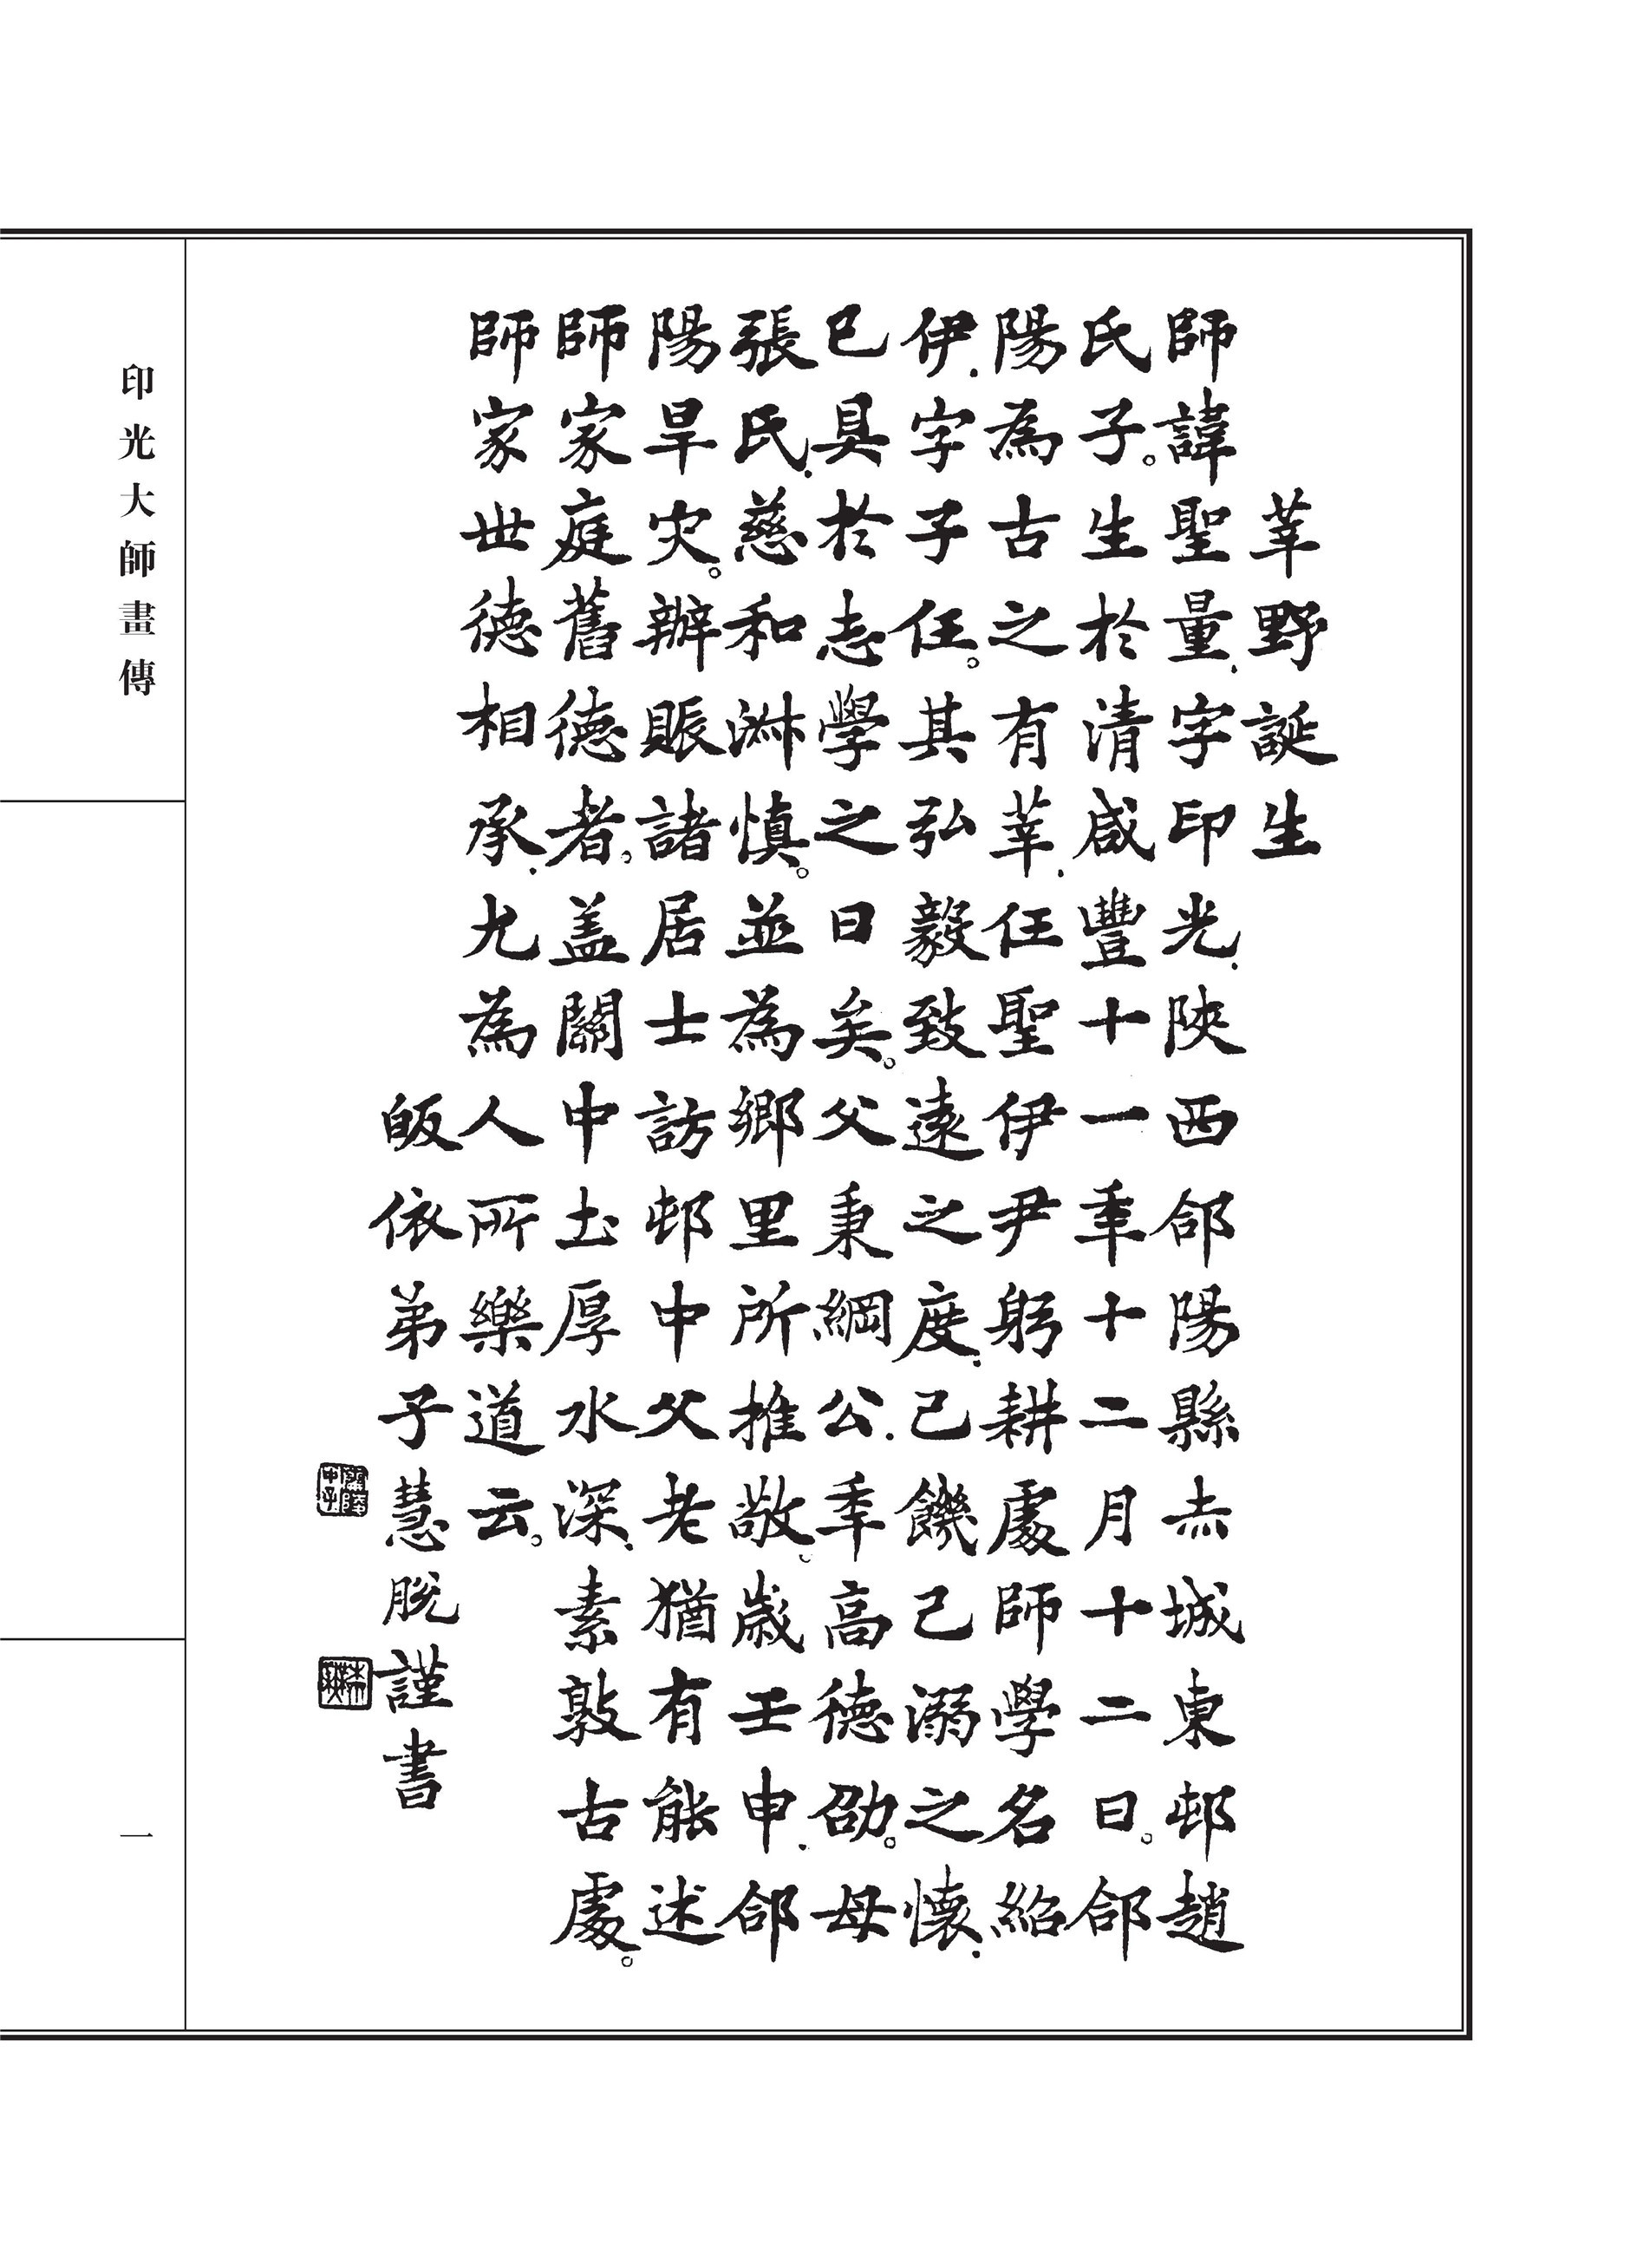 莘野誕生
師諱聖量.字印光.陝西郃陽縣赤城東邨趙
氏子。生於清咸豐十一年十二月十二日。郃
陽為古之有莘.任聖伊尹躬耕處師學名紹
伊.字子任。其弘毅致遠之度.己饑己溺之懷.
已具於志學之日矣。父秉綱公.季高德劭。母
張氏.慈和淋慎。並為鄉里所推敬。歲壬申.郃
陽旱灾。辦賑諸居士訪邨中父老猶有能述
師家庭舊德者。盖關中土厚水深.素敦古處。
師家世德相承.尤為人所樂道云。
皈依弟子慧脫謹書
印光大師畫傳
一